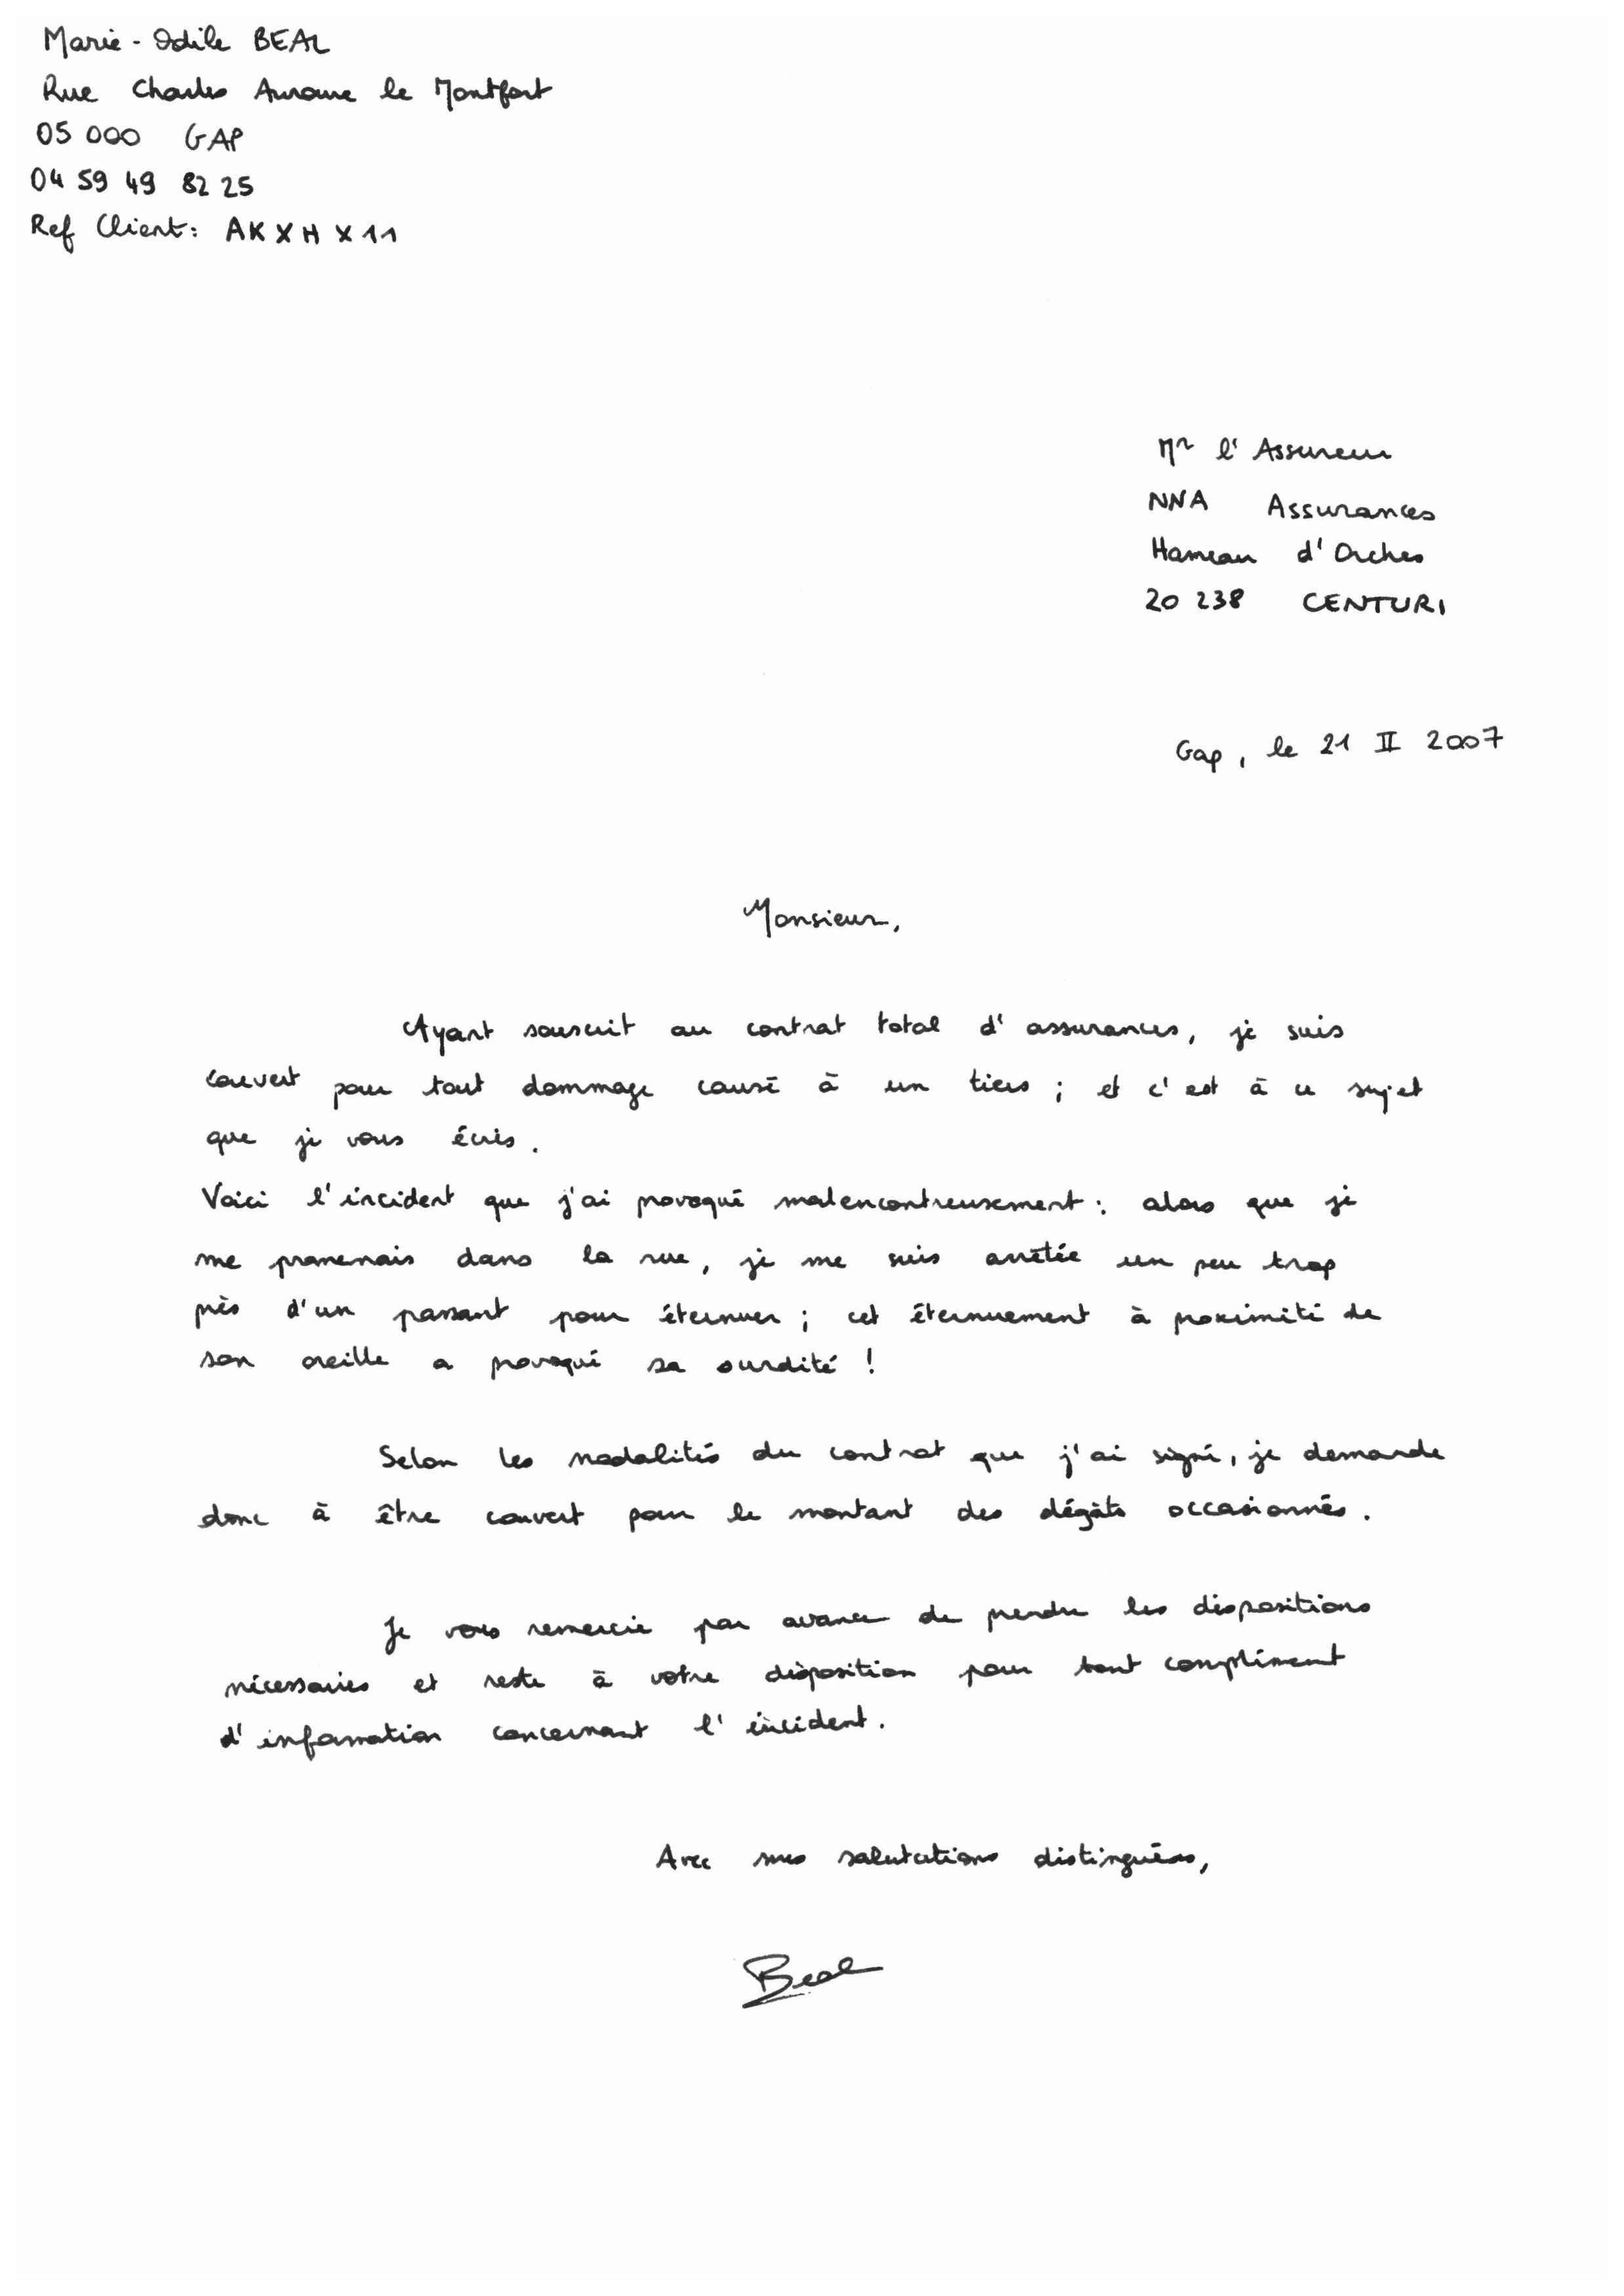 Marie-Odile BEAL
Rue Charles Auroume le Montfort
05 000 GAP
04 59 49 82 25
Ref Client: AKXHX11
Mr l'Assureur
NNA Assurances
Hameau d'Orches
20 238 CENTURI
Gap, le 21 II 2007
Monsieur,
Ayant souscrit au contrat total d'assurances, je suis
couvert pour tout dommage causé à un tiers ; et c'est à ce sujet
que je vous écris.
Voici l'incident que j'ai provoqué malencontreusement : alors que je
me promenais dans la rue, je me suis arrêtée un peu trop
près d'un passant pour éternuer ; cet éternuement à proximité de
son oreille a provoqué sa surdité !
Selon les modalités du contrat que j'ai signé, je demande
donc à être couvert pour le montant des dégâts occasionnés.
Je vous remercie par avance de prendre les dispositions
nécessaires et reste à votre disposition pour tout complément
d'information concernant l'incident.
Avec mes salutations distinguées,
Beal